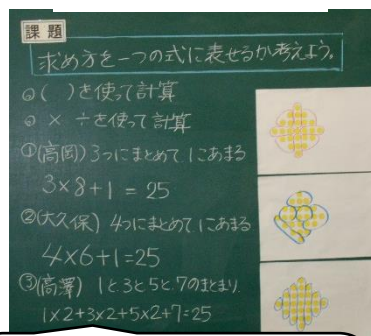 課題
求め方を一つの式に表せるか考えよう。
◎( )を使って計算
◎ × ÷を使って計算
①(高岡) 3つにまとめて 1にあまる
3×8+1 = 25
②(大久保) 4つにまとめて 1にあまる
4×6+1=25
③(高澤) 1と3と5と、7のまとまり。
1×2+3×2+5×2+7=25